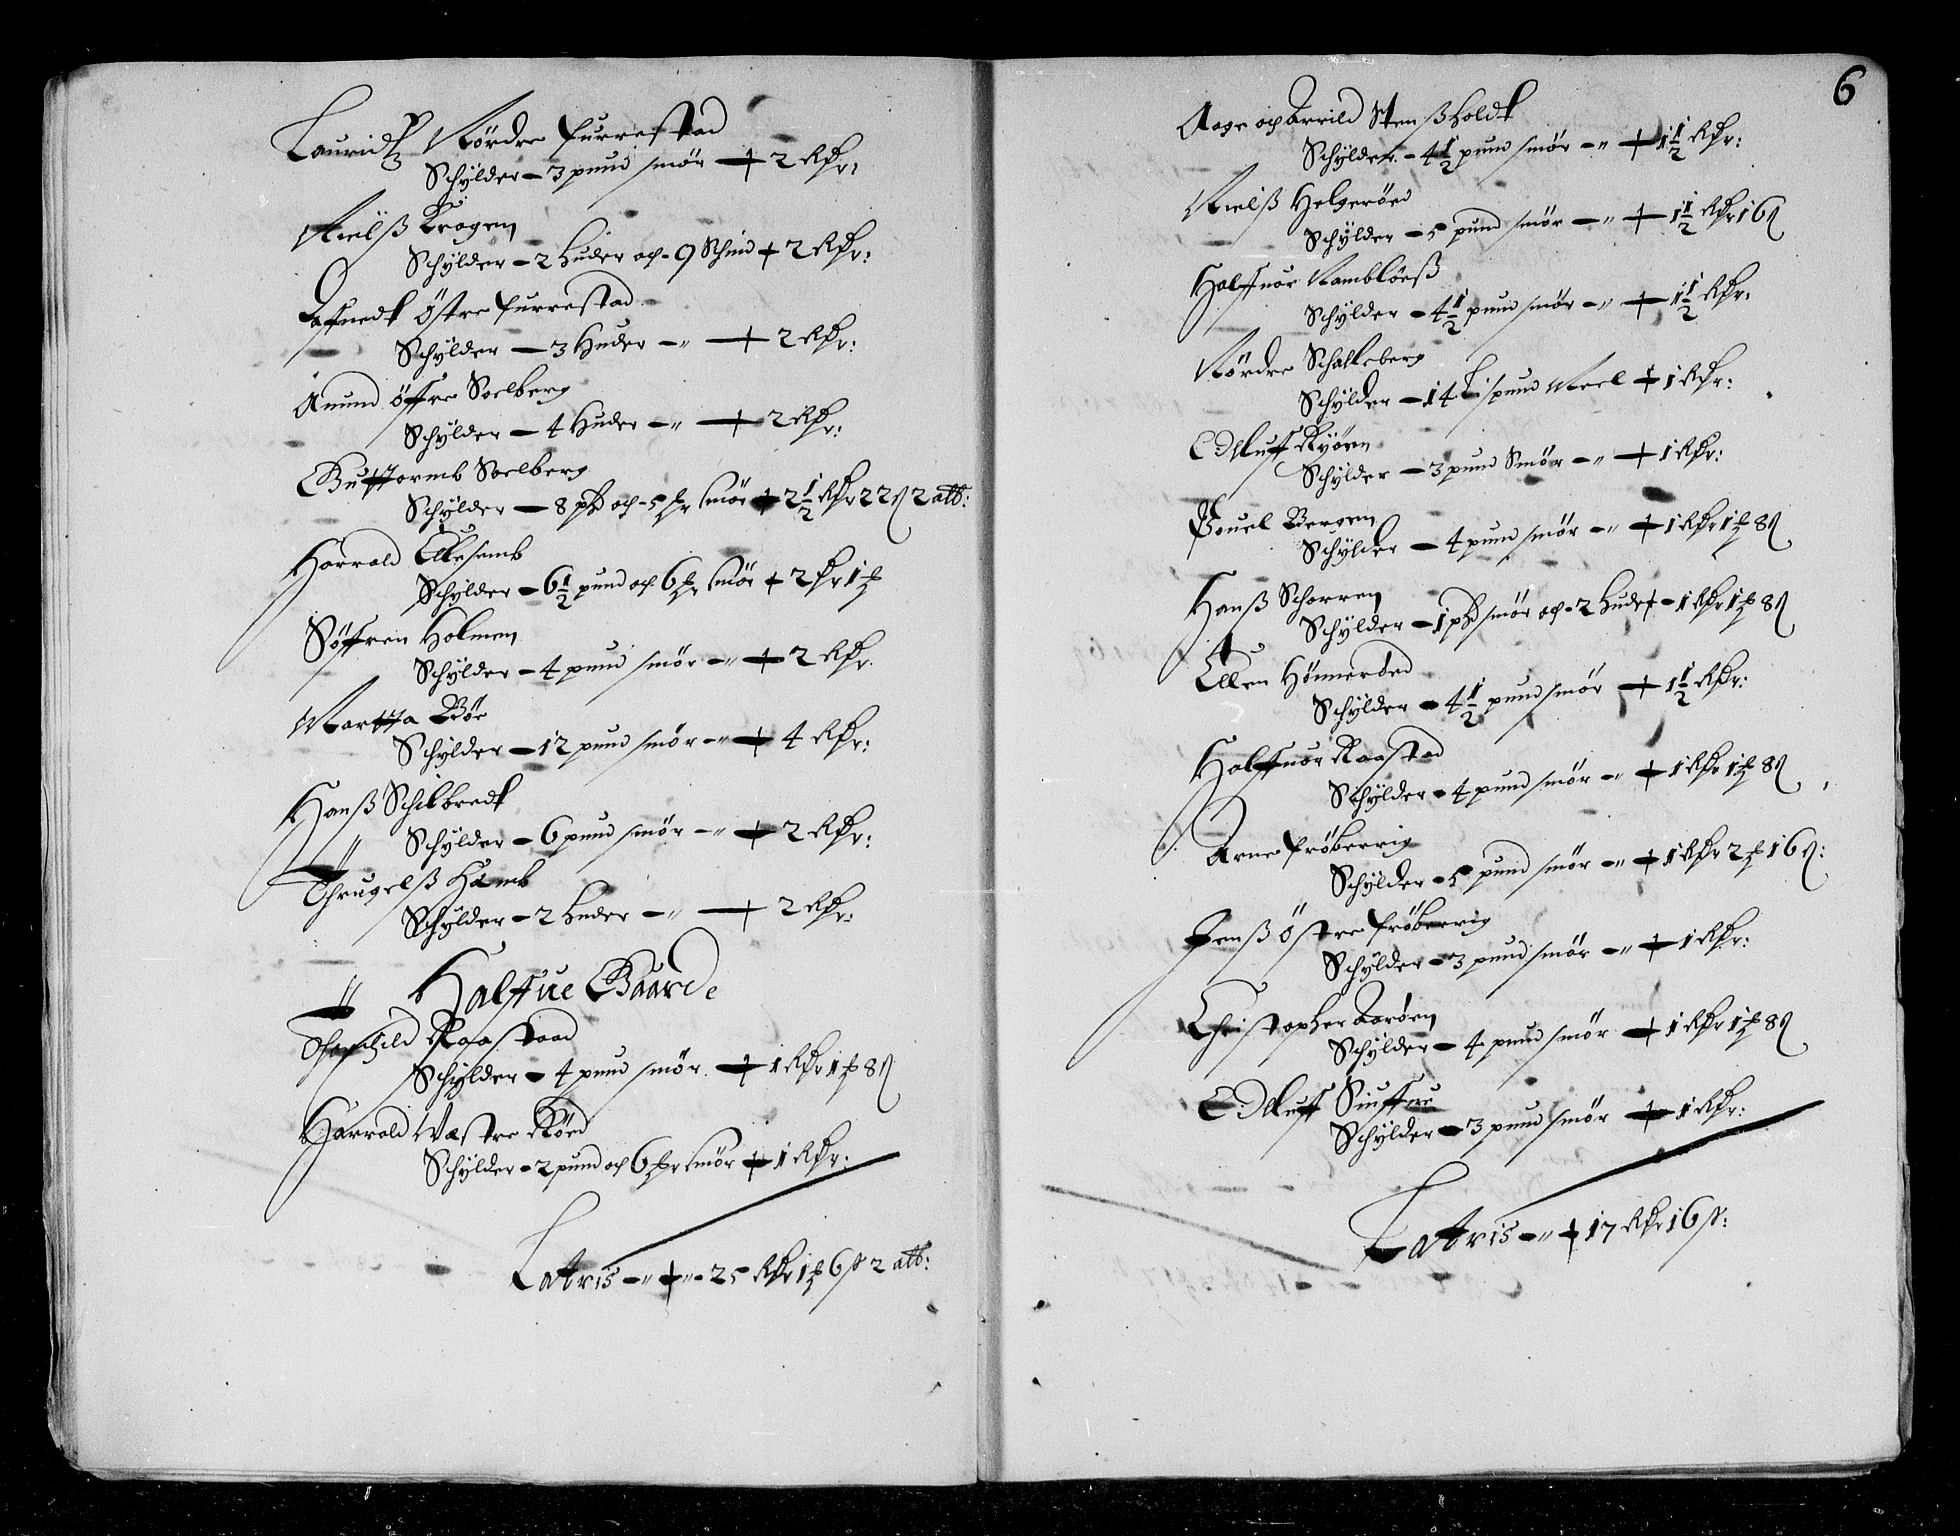 Lauridtz Nördre Furrestad
Schÿlder - 3 pund smör - 2 Rdr:
Nielß Kragen
Schÿlder - 2 huder och - 9 Schind - 2 Rdr:
Östre Furrestad
Schÿlder - 3 Huder - 2 Rdr:
Anund öffre Soelberg
Schÿlder - 4 Huder - 2 Rdr:
Guttormb Soelberg
Schÿlder - 8 pd och - 5 mr smör - 2 1/2 Rdr 22 ß 2 alb:
Harrald Ellesemb
Schÿlder - 6 1/2 pund och 6 mr smör - 2 dr 1 mk
Söffren Holmen
Schÿlder - 4 pund smör - 2 Rdr.
Martta Böe
Schÿlder - 12 pund smör - 4 Rdr:
Hanß Schilbredt
Schÿlder - 6 pund smör - 2 Rdr:
Thrugelß Hamb
Schÿlder - 2 huder - 2 Rdr:
Halffue Gaarde
Raastaad
Schÿlder - 4 pund smör - 1 Rdr 1 mk 8 ß
Harrald Væstre Röed
Schÿlder - 2 pund och 6 mr smör - 1 Rdr:
Latris - 25 Rdr 1 mk 6 ß 2 alb:
6
Aage och Arrild Stenßholdt
Schÿlder - 4 1/2 pund smör - 1 1/2 Rdr:
Nielß Helgeröed
Schÿlder - 5 pund smör - 1 1/2 Rdr 16 ß
Halffuor Ramblöeß
Schÿlder - 4 1/2 pund smör - 1 1/2 Rdr:
Nördre Schalleberg
Schÿlder - 14 Lispund Meel - 1 Rdr:
Olluff Kiörn
Schÿlder - 3 pund Smör - 1 Rdr:
Pouel Bergen
Schÿlder - 4 pund smör - 1 Rdr 1 mk 8 ß
Hanß Schorren
Schÿlder - 1 pd smör och - 2 huder - 1 Rdr 1 mk 8 ß
Ellen Hönneröed
Schÿlder - 4 1/2 pund smör - 1 1/2 Rdr:
Halffuor Raastad
Schÿlder - 4 pund smör - 1 Rdr 1 mk 8 ß
Arne Fröberrig
Schÿlder - 5 pund smör - 1 Rdr 2 mk 16 ß:
Jenß Östre Fröberrig
Schÿlder - 3 pund smör - 1 Rdr:
Christopher Aaröen
Schÿlder - 4 pund smör - 1 Rdr 1 mk 8 ß
Olluff
Schÿlder - 3 pund smör - 1 Rdr:
Latris - 17 Rdr 16 ß: